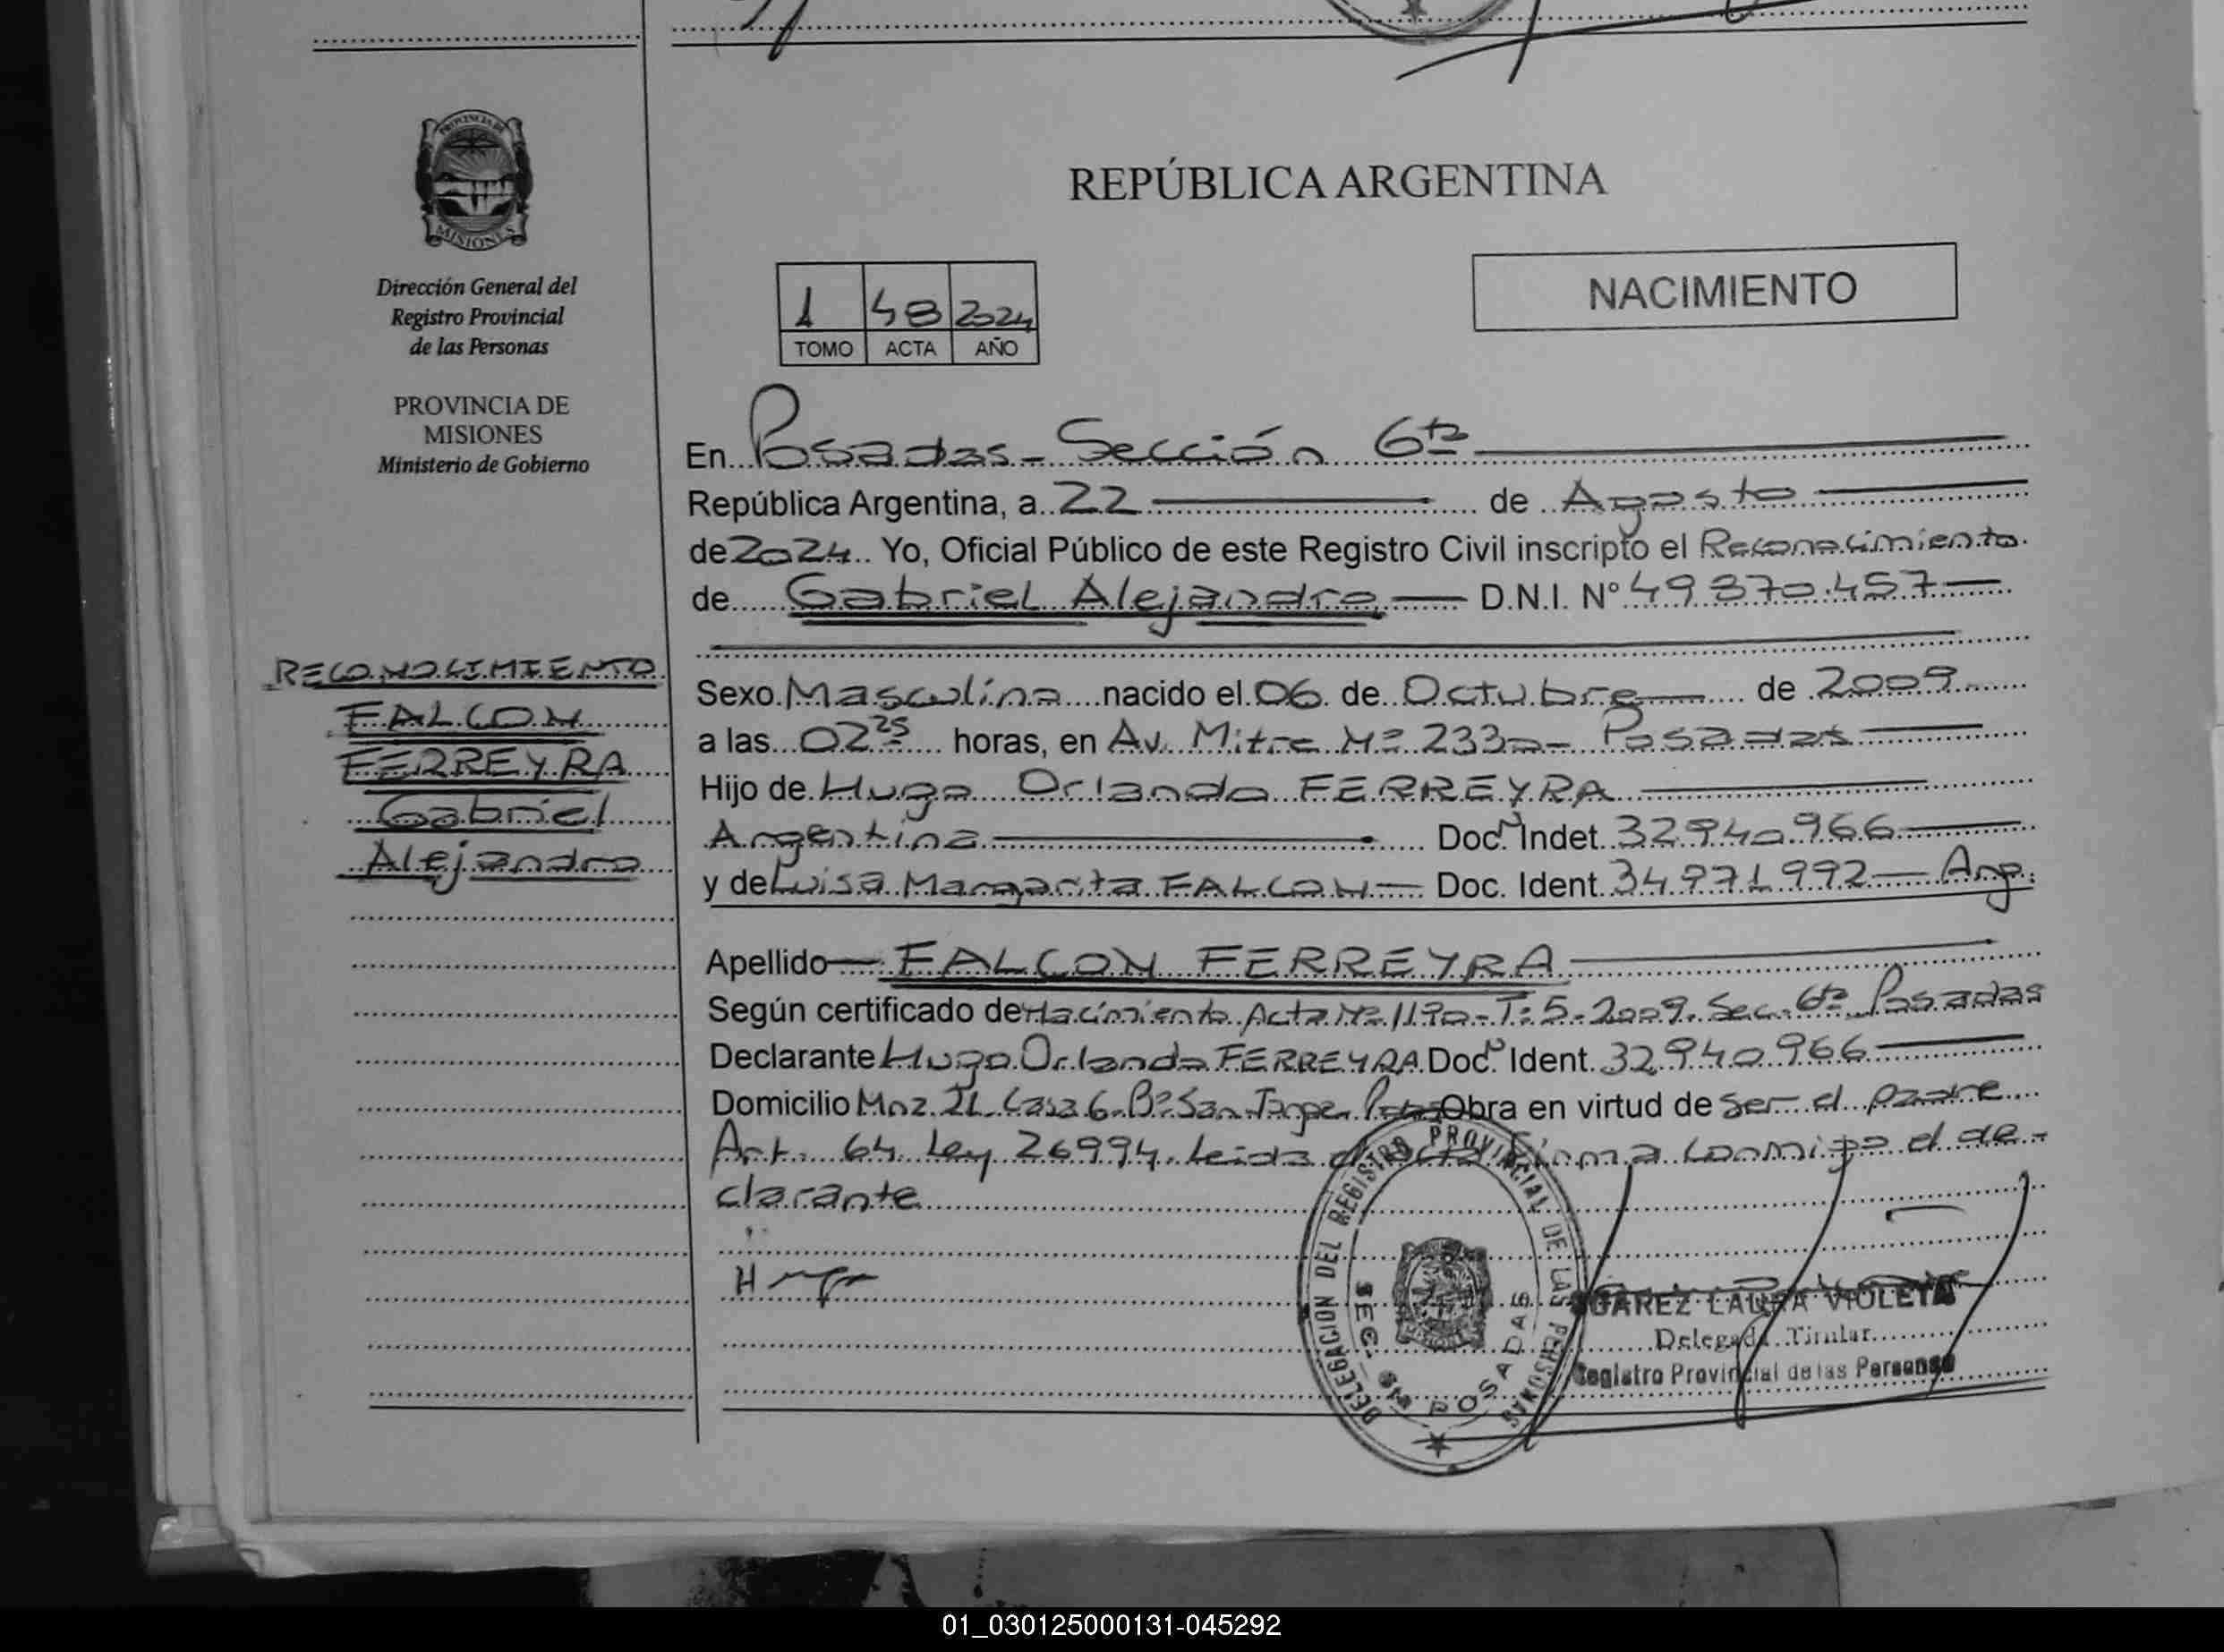 PROVINCIA DE
MISIONES
Dirección General del
Registro Provincial
de las Personas
PROVINCIA DE
MISIONES
Ministerio de Gobierno
RECONOCIMIENTO
FALCON
FERREYRA
Gabriel
Alejandro
REPÚBLICA ARGENTINA
NACIMIENTO
1 48 2024
TOMO ACTA AÑO
En Posadas - Sección 6ta
República Argentina, a 22 de Agosto
de 2024 Yo, Oficial Público de este Registro Civil inscripto el Reconocimiento
de Gabriel Alejandro D.N.I. Nº 49.870.457
Sexo Masculino nacido el 06 de Octubre de 2009
a las 02 25 horas, en Av. Mitre Nº 2330 - Posadas
Hijo de Hugo Orlando FERREYRA
Argentina Doc. Indet. 32.940.966
y de Luisa Margarita FALCON Doc. Ident. 34.971.992 Arg.
Apellido FALCON FERREYRA
Según certificado de Nacimiento Acta Nº 1190 - T: 5 - 2009. Sec. 6ta Posadas
Declarante Hugo Orlando FERREYRA Doc. Ident. 32.940.966
Domicilio Mnz. Casa 6 Bº San Jorge Obra en virtud de ser el padre
Art. 64 Ley 26994. Leida el acta firma conmigo el de-
clarante
DELEGACION DEL REGISTRO PROVINCIAL DE LAS PERSONAS
SEC. 6ta POSADAS
LAURA VIOLETA
Delegada Titular
Registro Provincial de las Personas
01_030125000131-045292